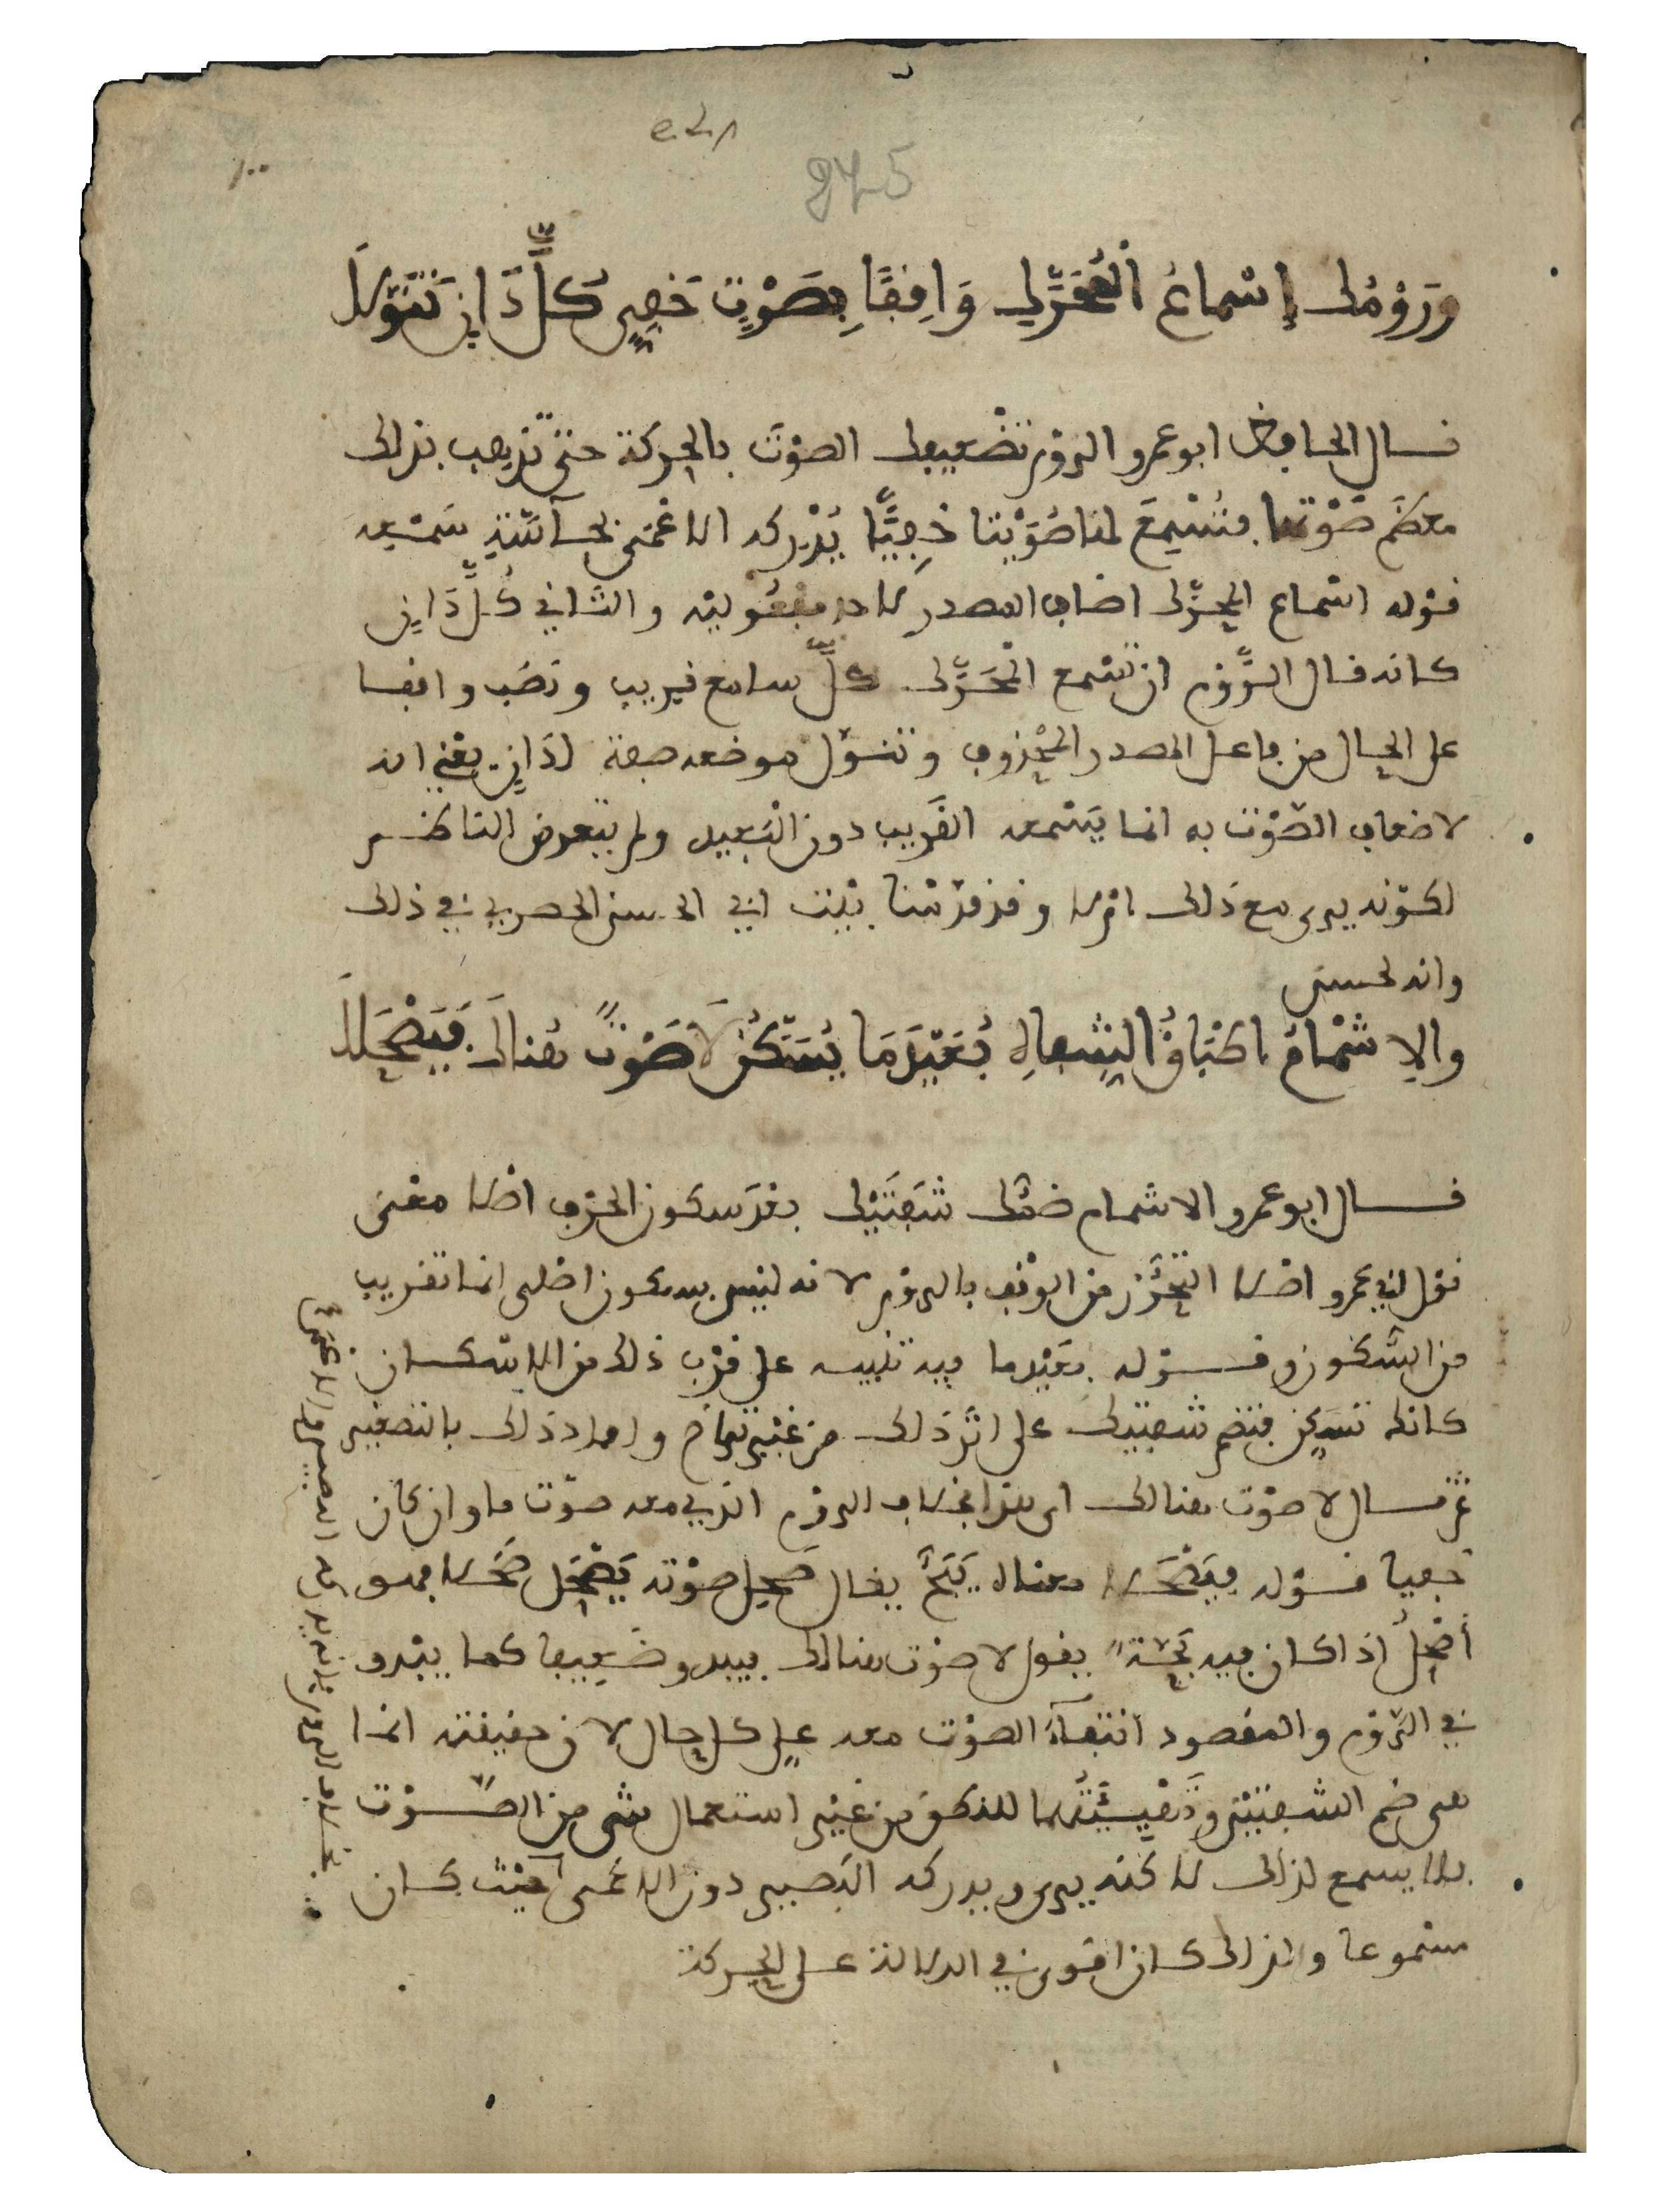 245
وَرَوْمُكَ إِسْمَاعُ الْمُحَرَّكِ وَاقِفًا بِصَوْتٍ خَفِيٍّ كُلَّ دَانٍ تَنَوَّلَا
قال الحافظ ابو عمرو الروم تضعيفك الصوت بالحركة حتى تذهب بذلك
معظم صوتها فتسمع لها صويتا خفيًّا يدركه الاعمى بحاسّة سمعه
قوله اسماع المحرّك اضاف المصدر لاحد مفعوليه والثاني كُلَّ دَانٍ
كانه قال الرَّوْم ان تسمع المحَرَّك كلَّ سامع قريب ونصب واقفا
على الحال من فاعل المصدر المحذوف وتنوّل موضعه صفة لدَانٍ يعني انه
لاضعاف الصّوت به انما يسمعه القريب دون البَعيد ولم يتعرض الناظم
لكونه يرى مع ذلك ام لا وقد قدّمنا بيت ابي الحسن الحصري في ذلك
وانه لحسن
والاِشْمَامُ اطْبَاقُ الشِّفَاهِ بُعَيْدَ مَا يُسَكَّنُ لَا صَوْتٌ هُنَاكَ فَيَصْحَلَا
قال ابو عمرو الاشمام ضمّك شَفَتَيْك بعد سكون الحرف اصلا معنى
قول ابي عمرو اصلا التحرُّز من الوقف بالروم لانه ليس بسكون اصلي انما تقريب
من السُّكون وقوله بعَيْدَما فيه تنبيه على قرب ذلك من الاسكان
كانك تسكن فتضم شفتيك على اثر ذلك من غير تراخ وافاد ذلك بالتصغير
ثم قال لا صوْت هناك اي هذا بخلاف الروم الذي معه صوت ما وان كان
خفيا قوله فيَصْحَلا معناه يَبَحَّ يقال صَحِل صوته يَصْحَل صَحَلا فهو
أَصْحَلُ اذا كان فيه بُحّة يقول لا صوت هناك فيبدو ضعيفا كما يبدو
في الرّوم والمقصود انتفاء الصوت معه على كل حال لان حقيقته انما
هى ضم الشفتين وتَهْيِيئَتُهما للنطق من غير استعمال شي من الصّوت
فلا يسمع لذلك لاكنه يرى ويدركه البصير دون الاعمى
بخلاف الروم فانه يدركه البصير والاعمى
حيث كان
مسموعا ولذلك كان اقوى في الدلالة على الحركة